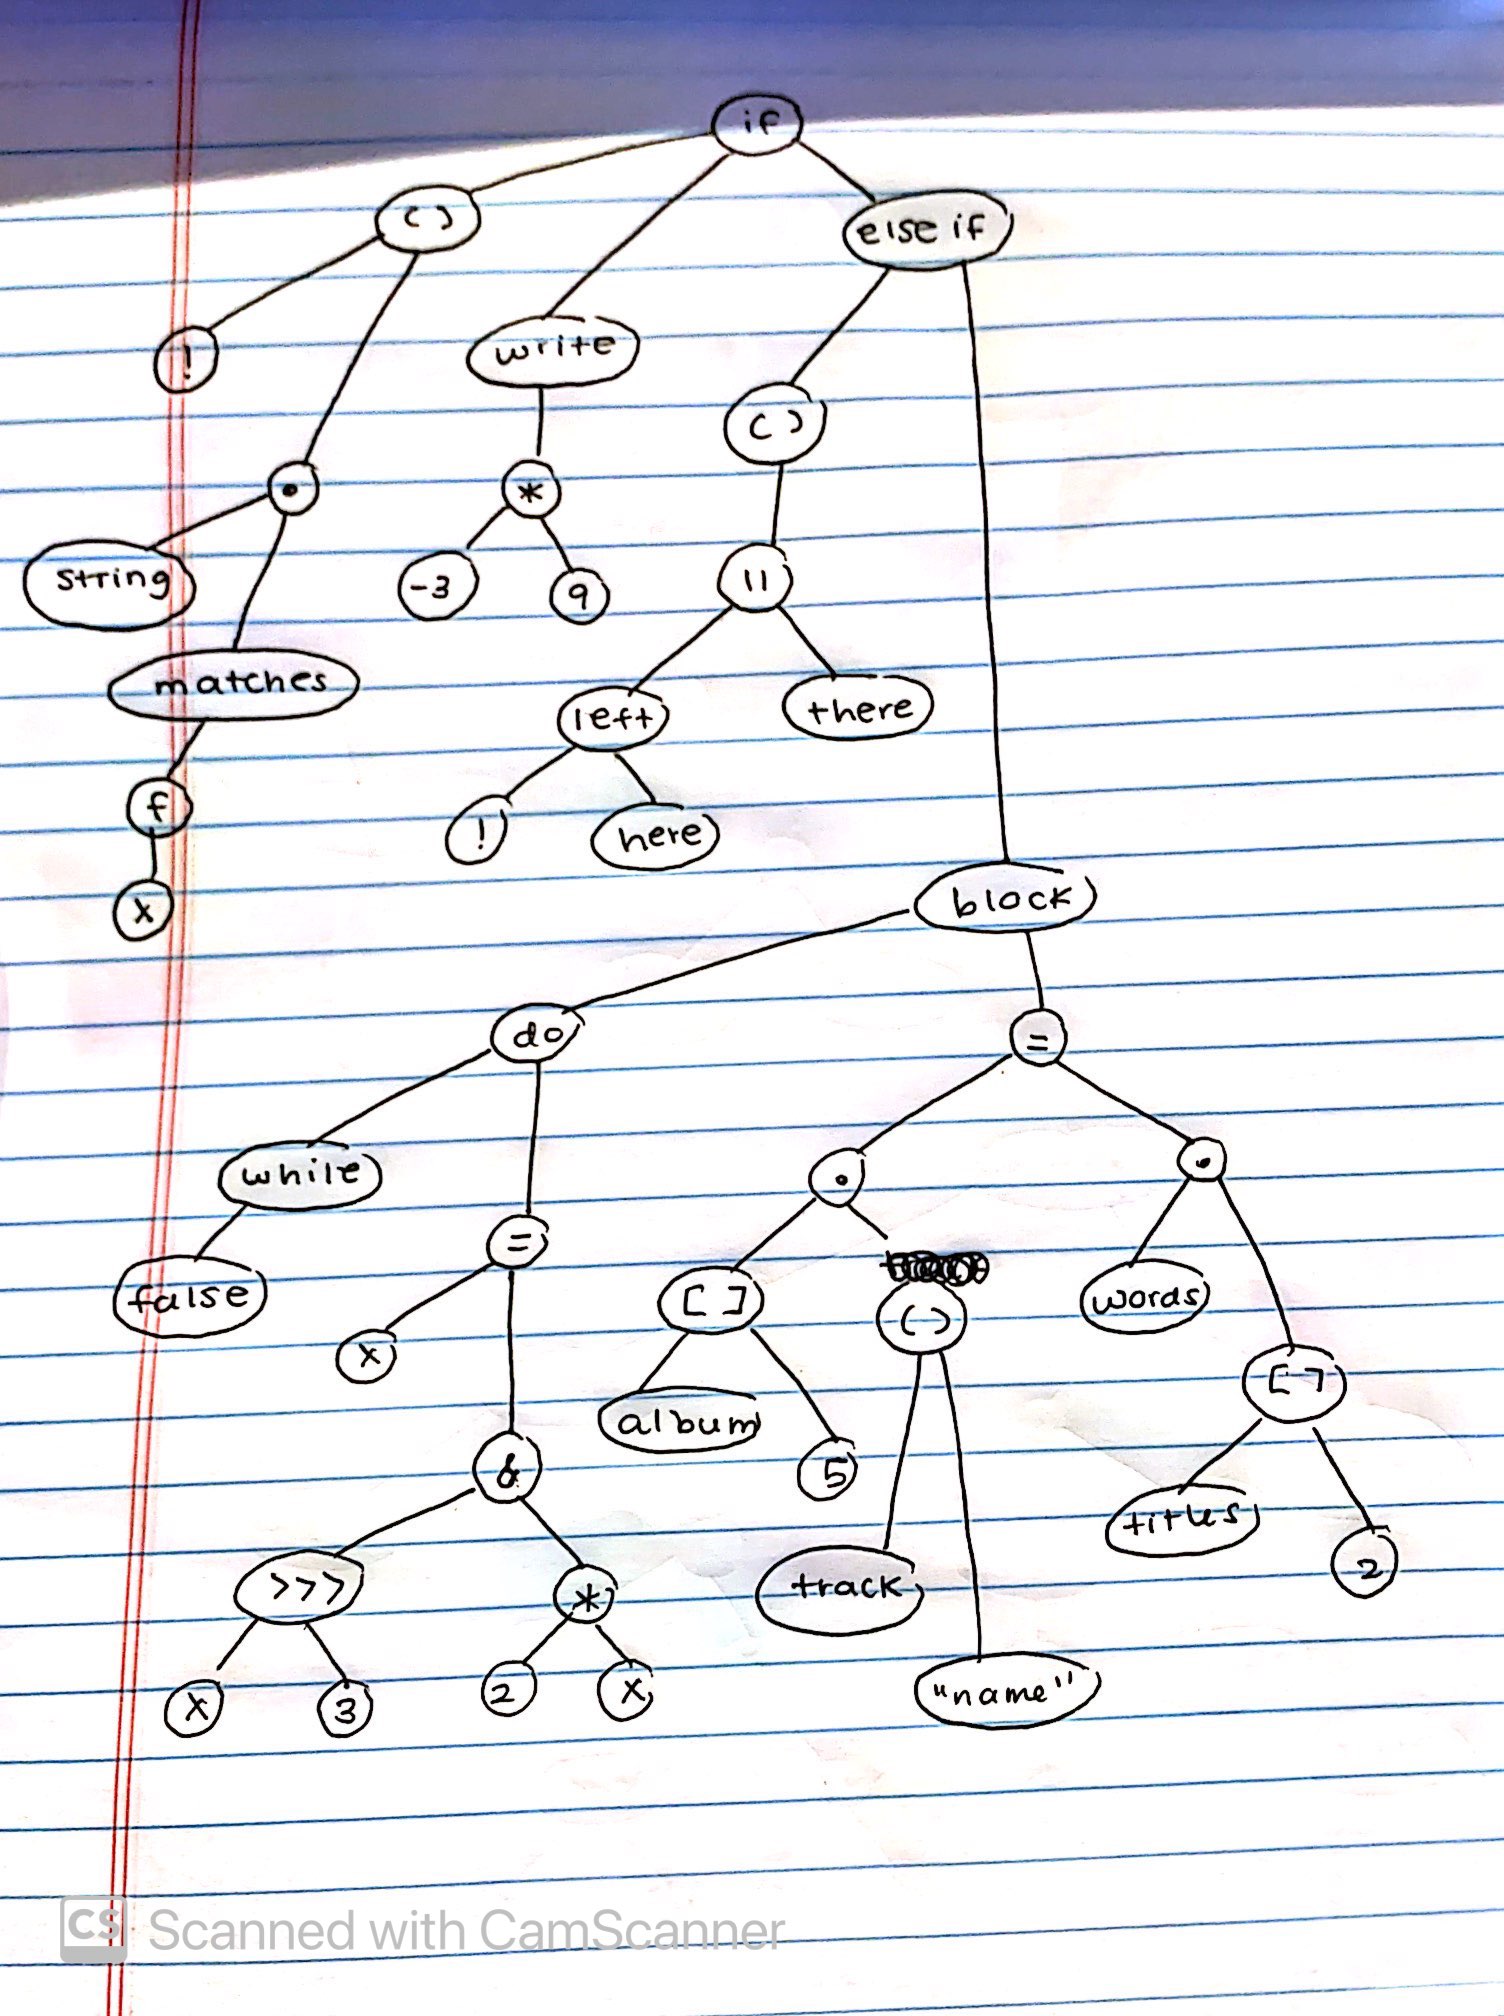 if
( )
else if
!
write
( )
.
*
string
-3
9
||
matches
left
there
f
!
here
x
block
do
=
while
.
.
=
false
[ ]
( )
words
x
[ ]
album
&
5
titles
>>>
*
track
2
x
3
2
x
"name"
CS Scanned with CamScanner